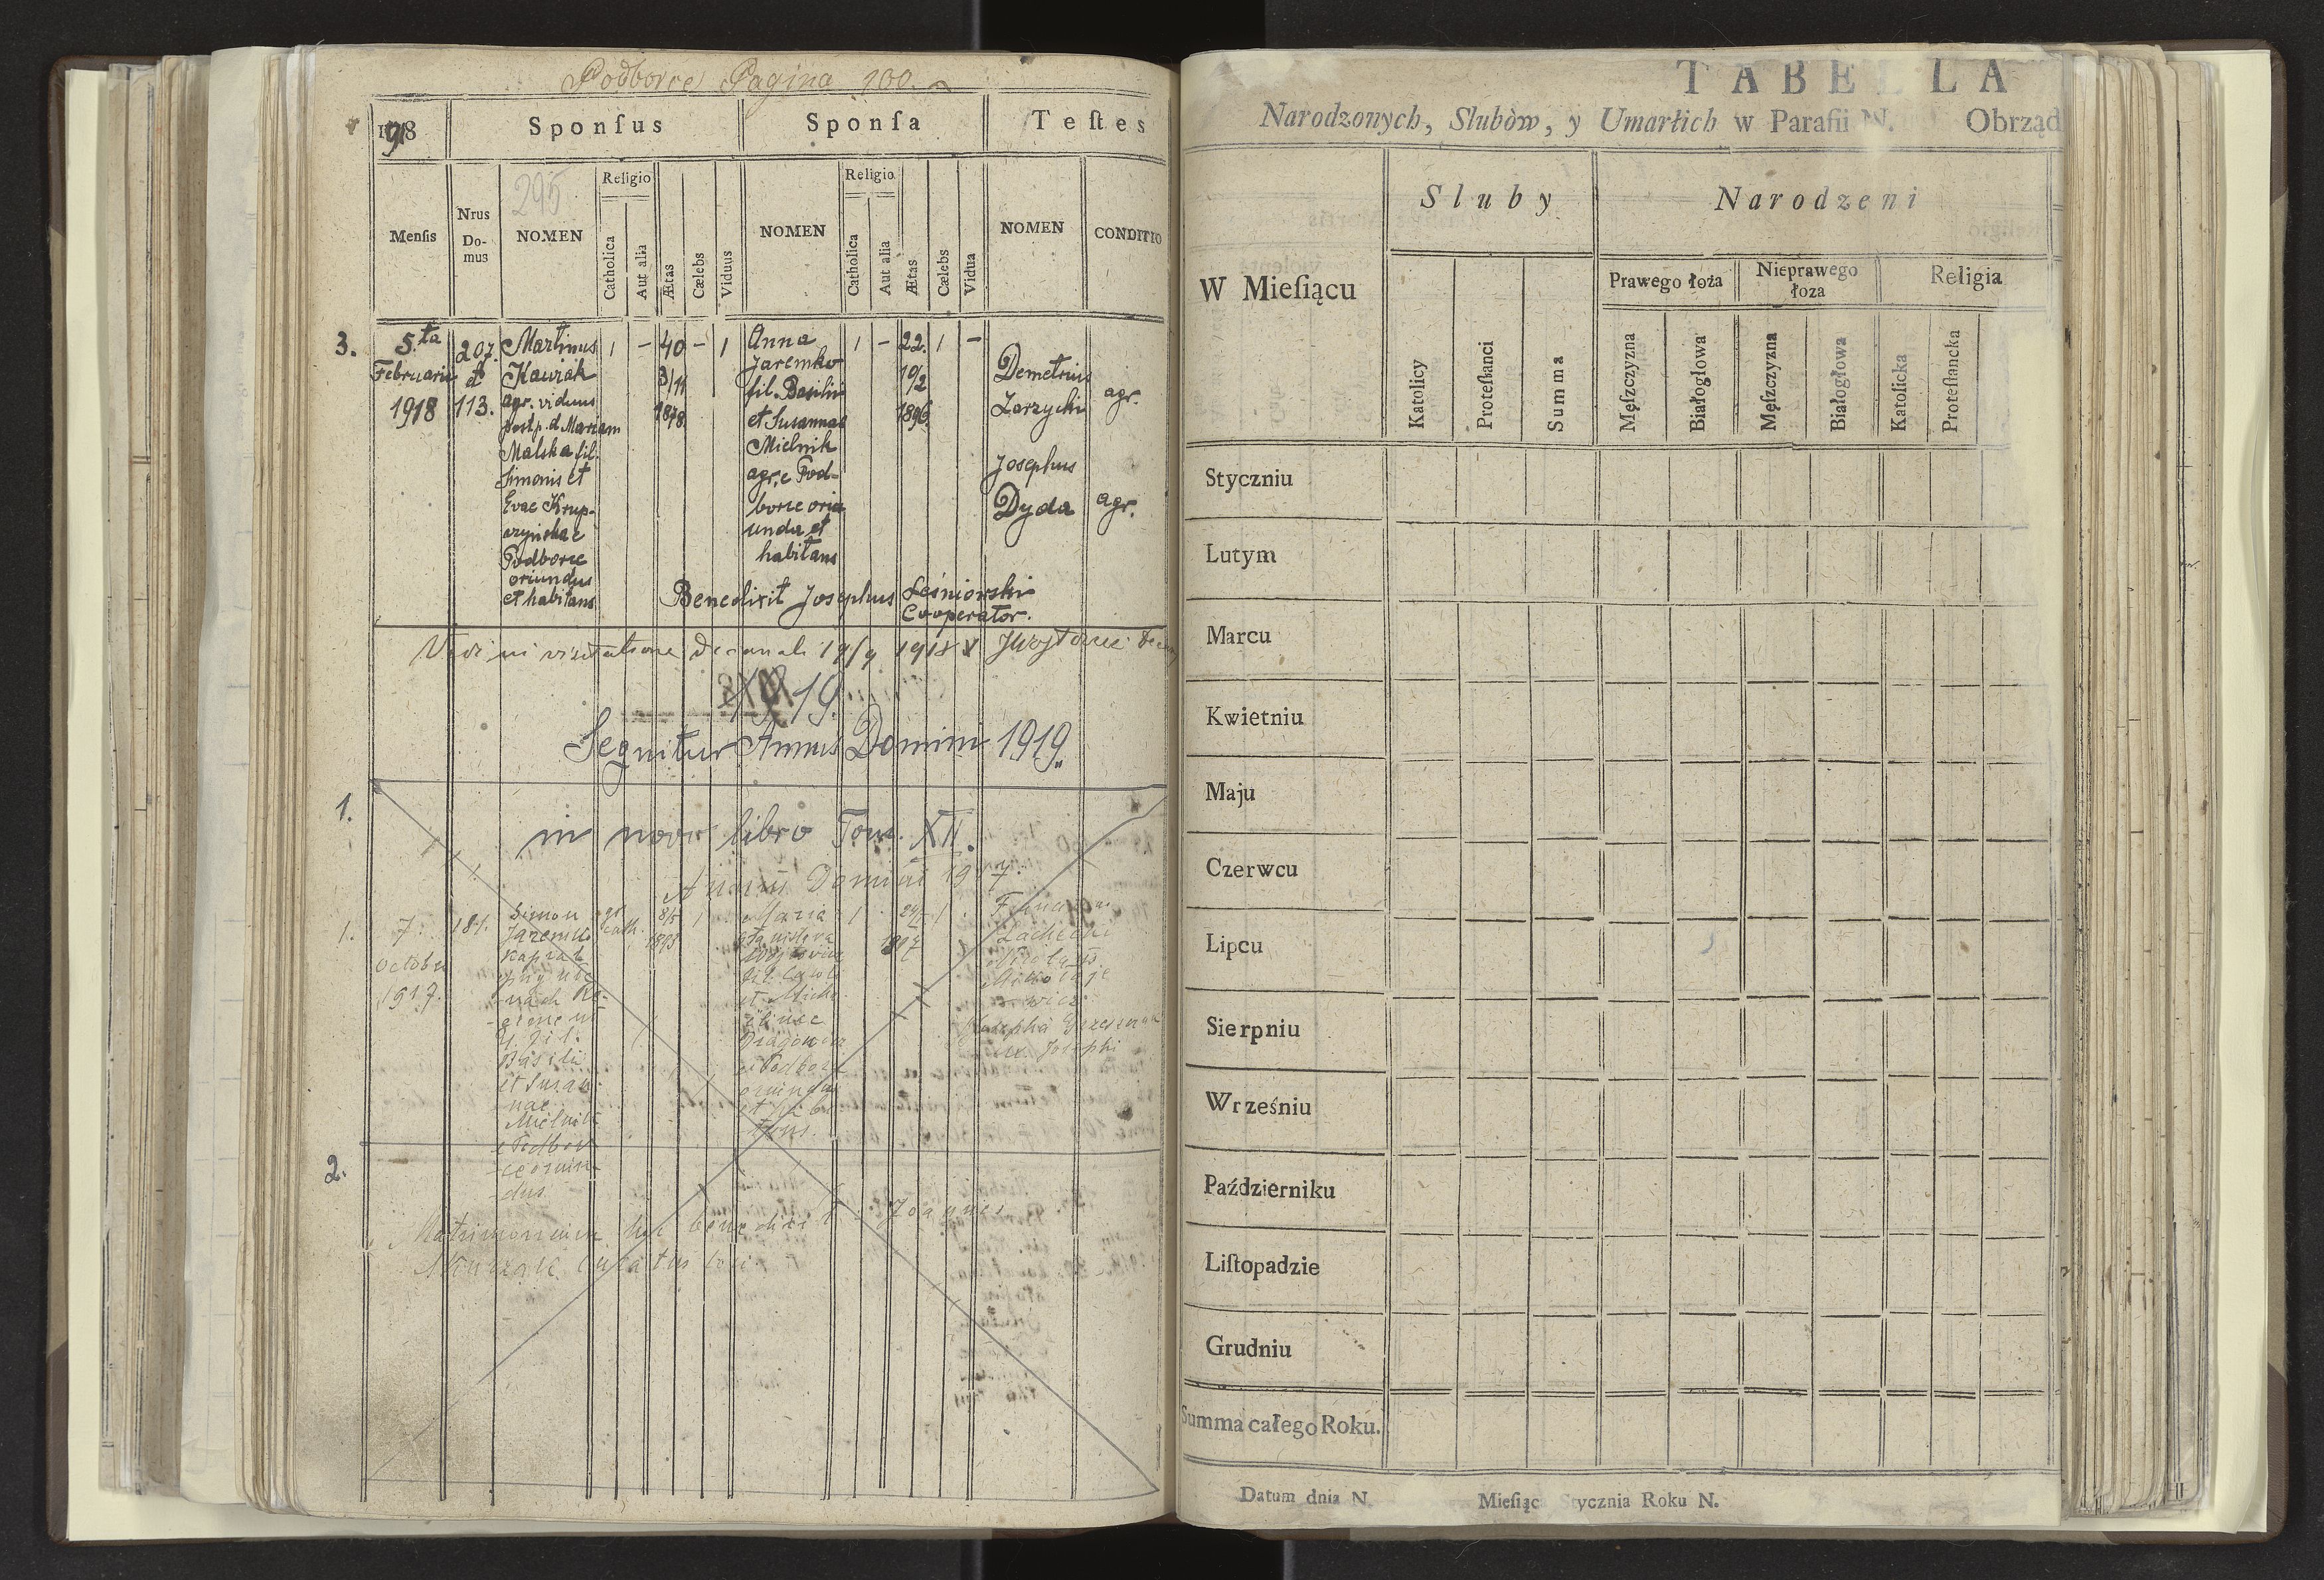 Podborce Pagina 100.
1918
Sponſus
Sponſa
Teſtes
Menſis
Nrus Do-mus
295
NOMEN
Religio
Catholica
Aut alia
Ætas
Cælebs
Viduus
NOMEN
Religio
Catholica
Aut alia
Ætas
Cælebs
Vidua
NOMEN
CONDITIO
3.
5.ta
Februarii
1918
207.
et
113.
Martinus
Kawiak
agr. viduus
post p. d. Mariam
Malska fil.
Simonis et
Evae Krup-
czyńska e
Podborce
oriundus
et habitans
1 - 40 - 1
3/11
1878
Anna
Jaremko
fil. Basilii
et Susannae
Mielnik
agr. e Pod-
borce ori-
unda et
habitans
1 - 22. 1 -
10/2
1896
Demetrius
Zarzycki
agr.
Josephus
Dyda
agr.
Benedixit Josephus Leśniowski
Cooperator.
Vidi in visitatione decanali 19/9 1918
1919.
Sequitur Annus Domini 1919.
1.
in novo libro Tom. XII.
Annus Domini 1917.
1.
7.
Octobr
1917.
181.
Simon
Jaremko
et Susan-
nae
Mielnik
e Podbor-
ce oriun-
dus
gr.
cath.
8/5
1893
1
Maria
et Micha
e Podborce
oriunda
et habi
tans.
1
24/
1
2.
Matrimonium hoc benedixit Joannes
TABELLA
Narodzonych, Slubòw, y Umarłich w Parafii N. Obrząd
W Mieſiącu
Sluby
Narodzeni
Katolicy
Proteſtanci
Summa
Prawego łoża
Nieprawego łoza
Religia
Męſzczyzna
Białogłowa
Męſzczyzna
Białogłowa
Katolicka
Proteſtancka
Styczniu
Lutym
Marcu
Kwietniu
Maju
Czerwcu
Lipcu
Sierpniu
Wrześniu
Październiku
Liſtopadzie
Grudniu
Summa całego Roku.
Datum dnia N. Mieſiąc Stycznia Roku N.